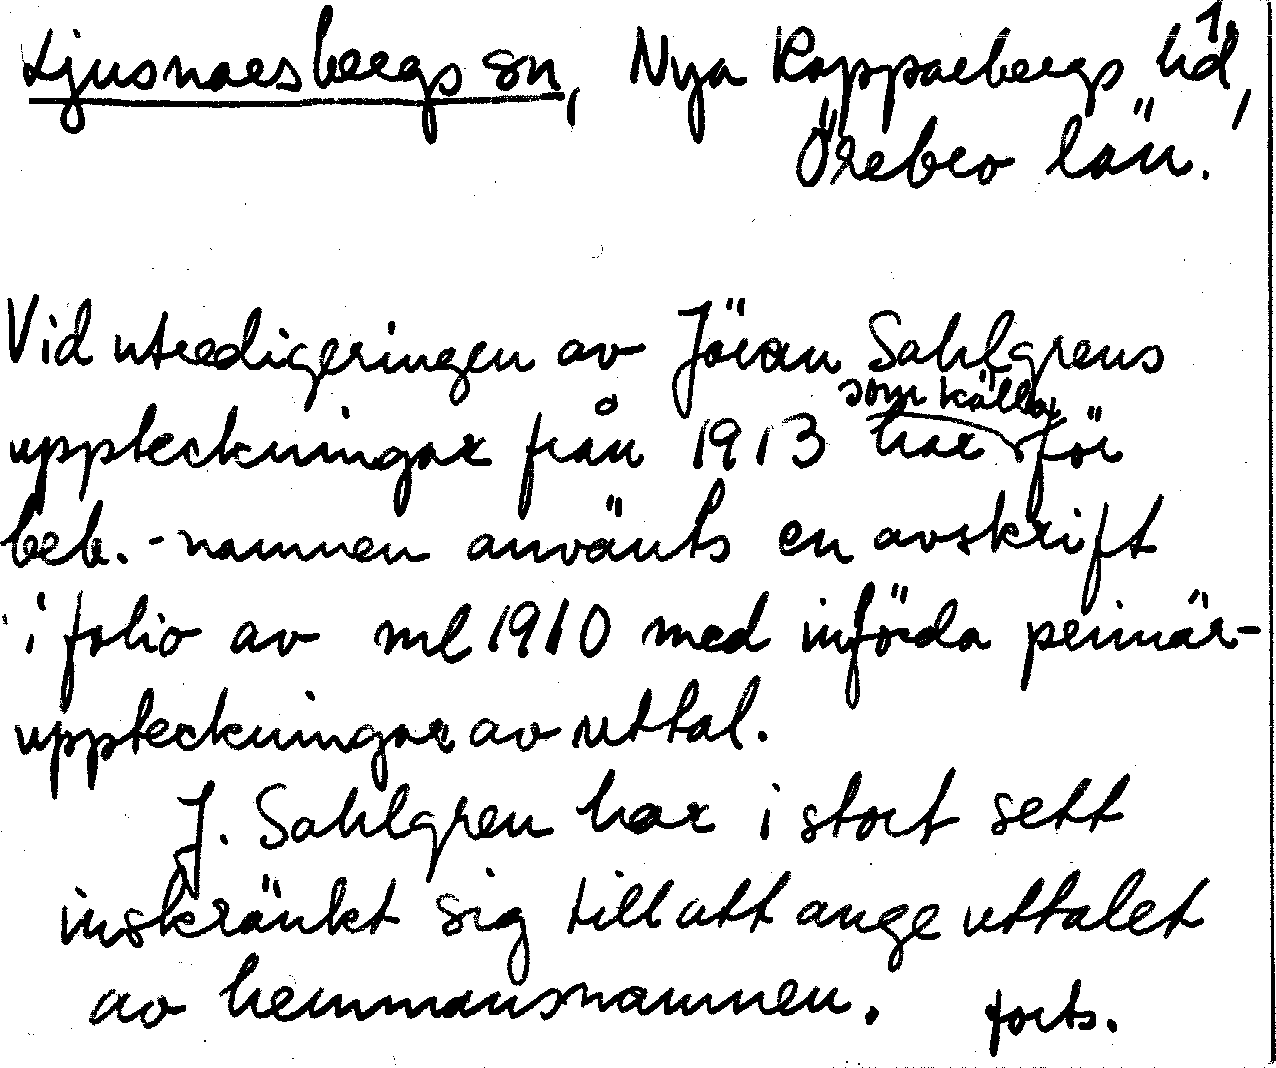 Ljusnarsbergs sn, Nya Kopparbergs hd, 1
Örebro län.
Vid utredigeringen av Jöran Sahlgrens
uppteckningar från 1913 har som källa för
beb.-namnen använts en avskrift
i folio av ml 1910 med införda primär-
uppteckningar av uttal.
J. Sahlgren har i stort sett
inskränkt sig till att ange uttalet
av hemmansnamnen. forts.